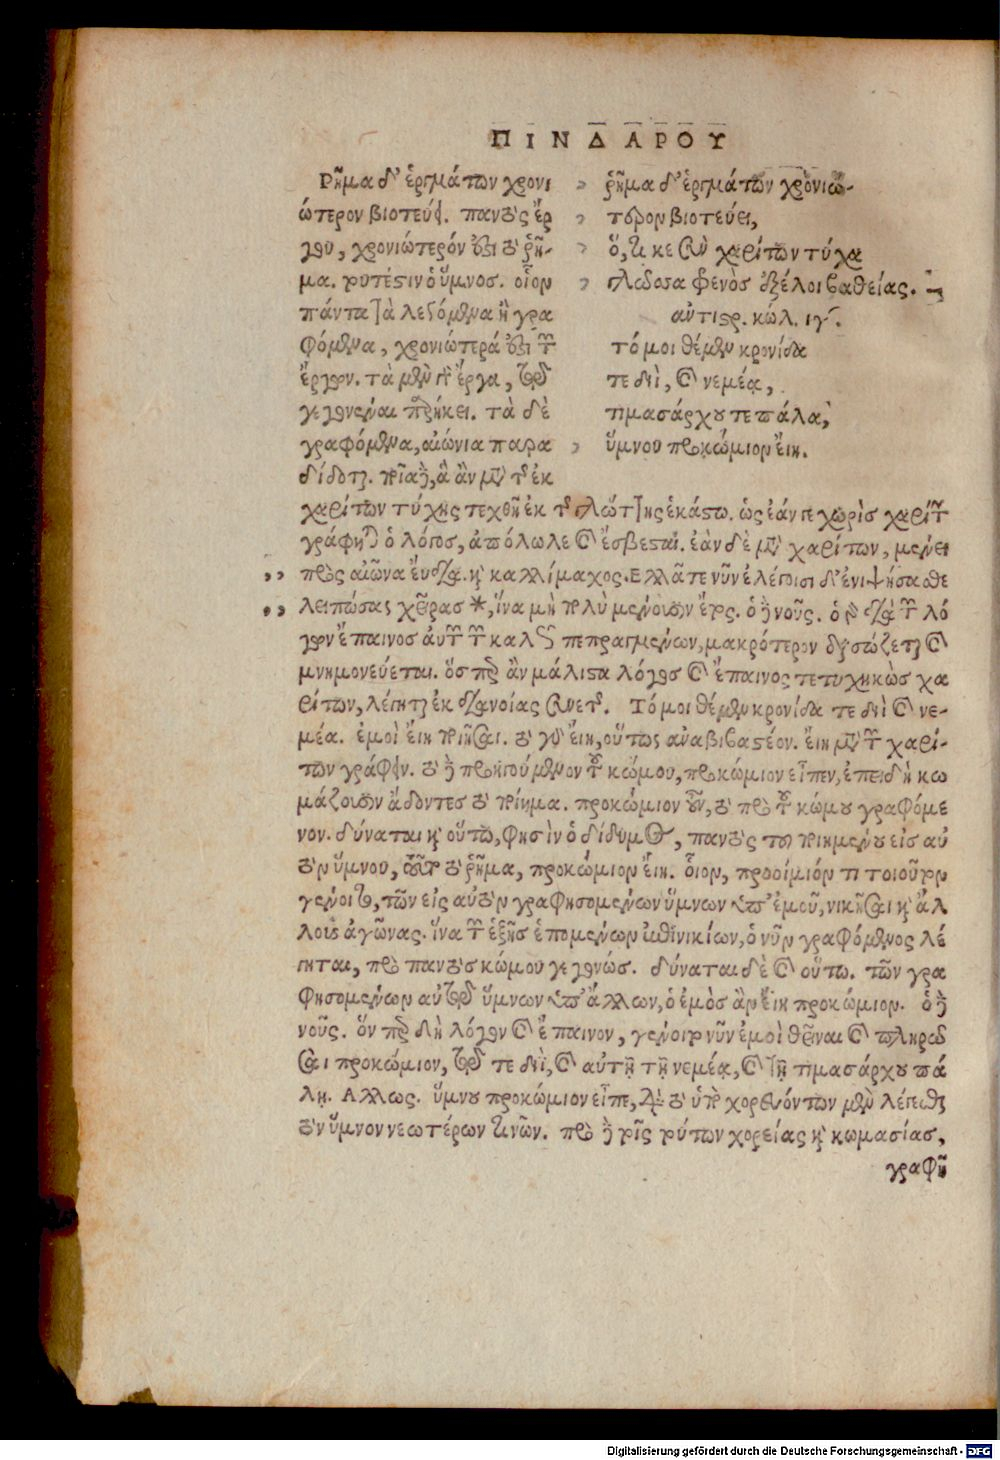 ΠΙΝΔΑΡΟΥ
Ρῆμα δ' ἑργμάτων χρονι
ώτερον βιοτεύει. παντὸς ἔρ
γου, χρονιώτερόν ἐστι τὸ ῥῆ-
μα. τουτέστιν ὁ ὕμνος. οἷον
πάντα τὰ λεγόμενα ἢ γρα
φόμενα, χρονιώτερά ἐστι τῶν
ἔργων. τὰ μὲν γὰρ ἔργα, τῷ
γεγονέναι παρήκει. τὰ δὲ
γραφόμενα, αἰώνια παρα
δίδοται. ταῦτα δὲ, ἃ ἂν μετὰ τῆς ἐκ
ῥῆμα δ' ἑργμάτων χρονιώ-
τερον βιοτεύει,
ὅ, τι κε σὺν χαρίτων τύχα
γλῶσσα φρενὸς ἐξέλοι βαθείας.
αντιστρ. κώλ. ιγ.
τό μοι θέμεν κρονίδα
τε διὶ, καὶ νεμέᾳ,
τιμασάρχου τε πάλᾳ,
ὕμνου προκώμιον εἴη.
χαρίτων τύχης τεχθῇ ἐκ τῆς γλώττης ἑκάστῳ. ὡς ἐάν γε χωρὶς χαρίτων
γράφηται ὁ λόγος, ἀπόλωλε καὶ ἔσβεσται. ἐὰν δὲ μετὰ χαρίτων, μένει
πρὸς αἰῶνα ἔνδοξα. καὶ καλλίμαχος. Ελλᾶτε νῦν ἐλέγοισι δ' ἐνιψήσασθε
λειπώσας χεῖρας *, ἵνα μὴ πουλὺ μένοισιν ἔτος. ὁ δὲ νοῦς. ὁ γὰρ διὰ τῶν λό
γων ἔπαινος αὐτῶν τῶν καλῶς πεπραγμένων, μακρότερον διασώζεται καὶ
μνημονεύεται. ὅσπερ ἂν μάλιστα λόγος καὶ ἔπαινος τετυχηκὼς χα
ρίτων, λέγηται ἐκ διανοίας συνετῆς. Τό μοι θέμεν κρονίδα τε διὶ καὶ νε-
μέα. ἐμοὶ εἴη ποιῆσαι. τὸ γὰρ εἴη, οὕτως αναβιβαστέον. εἴη μετὰ τῶν χαρί-
των γράφειν. τὸ δὲ προηγούμενον τοῦ κώμου, προκώμιον εἶπεν, ἐπειδὴ κω
μάζουσιν ἄδοντες τὸ ποίημα. προκώμιον οὖν, τὸ πρὸ τοῦ κώμου γραφόμε
νον. δύναται καὶ οὕτω, φησὶν ὁ δίδυμος, παντὸς τοῦ ποιημένου εἰς αὐ
τὸν ὕμνου, τοῦτο τὸ ῥῆμα, προκώμιον εἴη. οἷον, προοίμιόν τι τοιοῦτον
γένοιτο, τῶν εἰς αὐτὸν γραφησομένων ὕμνων ὑπ' ἐμοῦ, νικῆσαι καὶ ἄλ
λους ἀγῶνας. ἵνα τῶν ἑξῆς ἑπομένων ἐπινικίων, ὁ νῦν γραφόμενος λέ
γηται, πρὸ παντὸς κώμου γεγονώς. δύναται δὲ καὶ οὕτω. τῶν γρα
φησομένων αὐτῷ ὕμνων ὑπ' ἄλλων, ὁ ἐμὸς ἂν εἴη προκώμιον. ὁ δὲ
νοῦς. ὅνπερ δὴ λόγον καὶ ἔπαινον, γένοιτο νῦν ἐμοὶ θεῖναι καὶ πληρῶ
σαι προκώμιον, τῷ τε διὶ, καὶ αὐτῇ τῇ νεμέᾳ, καὶ τῇ τιμασάρχου πά
λῃ. Αλλως. ὕμνου προκώμιον εἶπε, διὰ τὸ ὑπὸ χορευόντων μὲν λέγεσθαι
τὸν ὕμνον νεωτέρων τινῶν. πρὸ δὲ τῆς τούτων χορείας καὶ κωμασίας,
γραφῆ
Digitalisierung gefördert durch die Deutsche Forschungsgemeinschaft - DFG